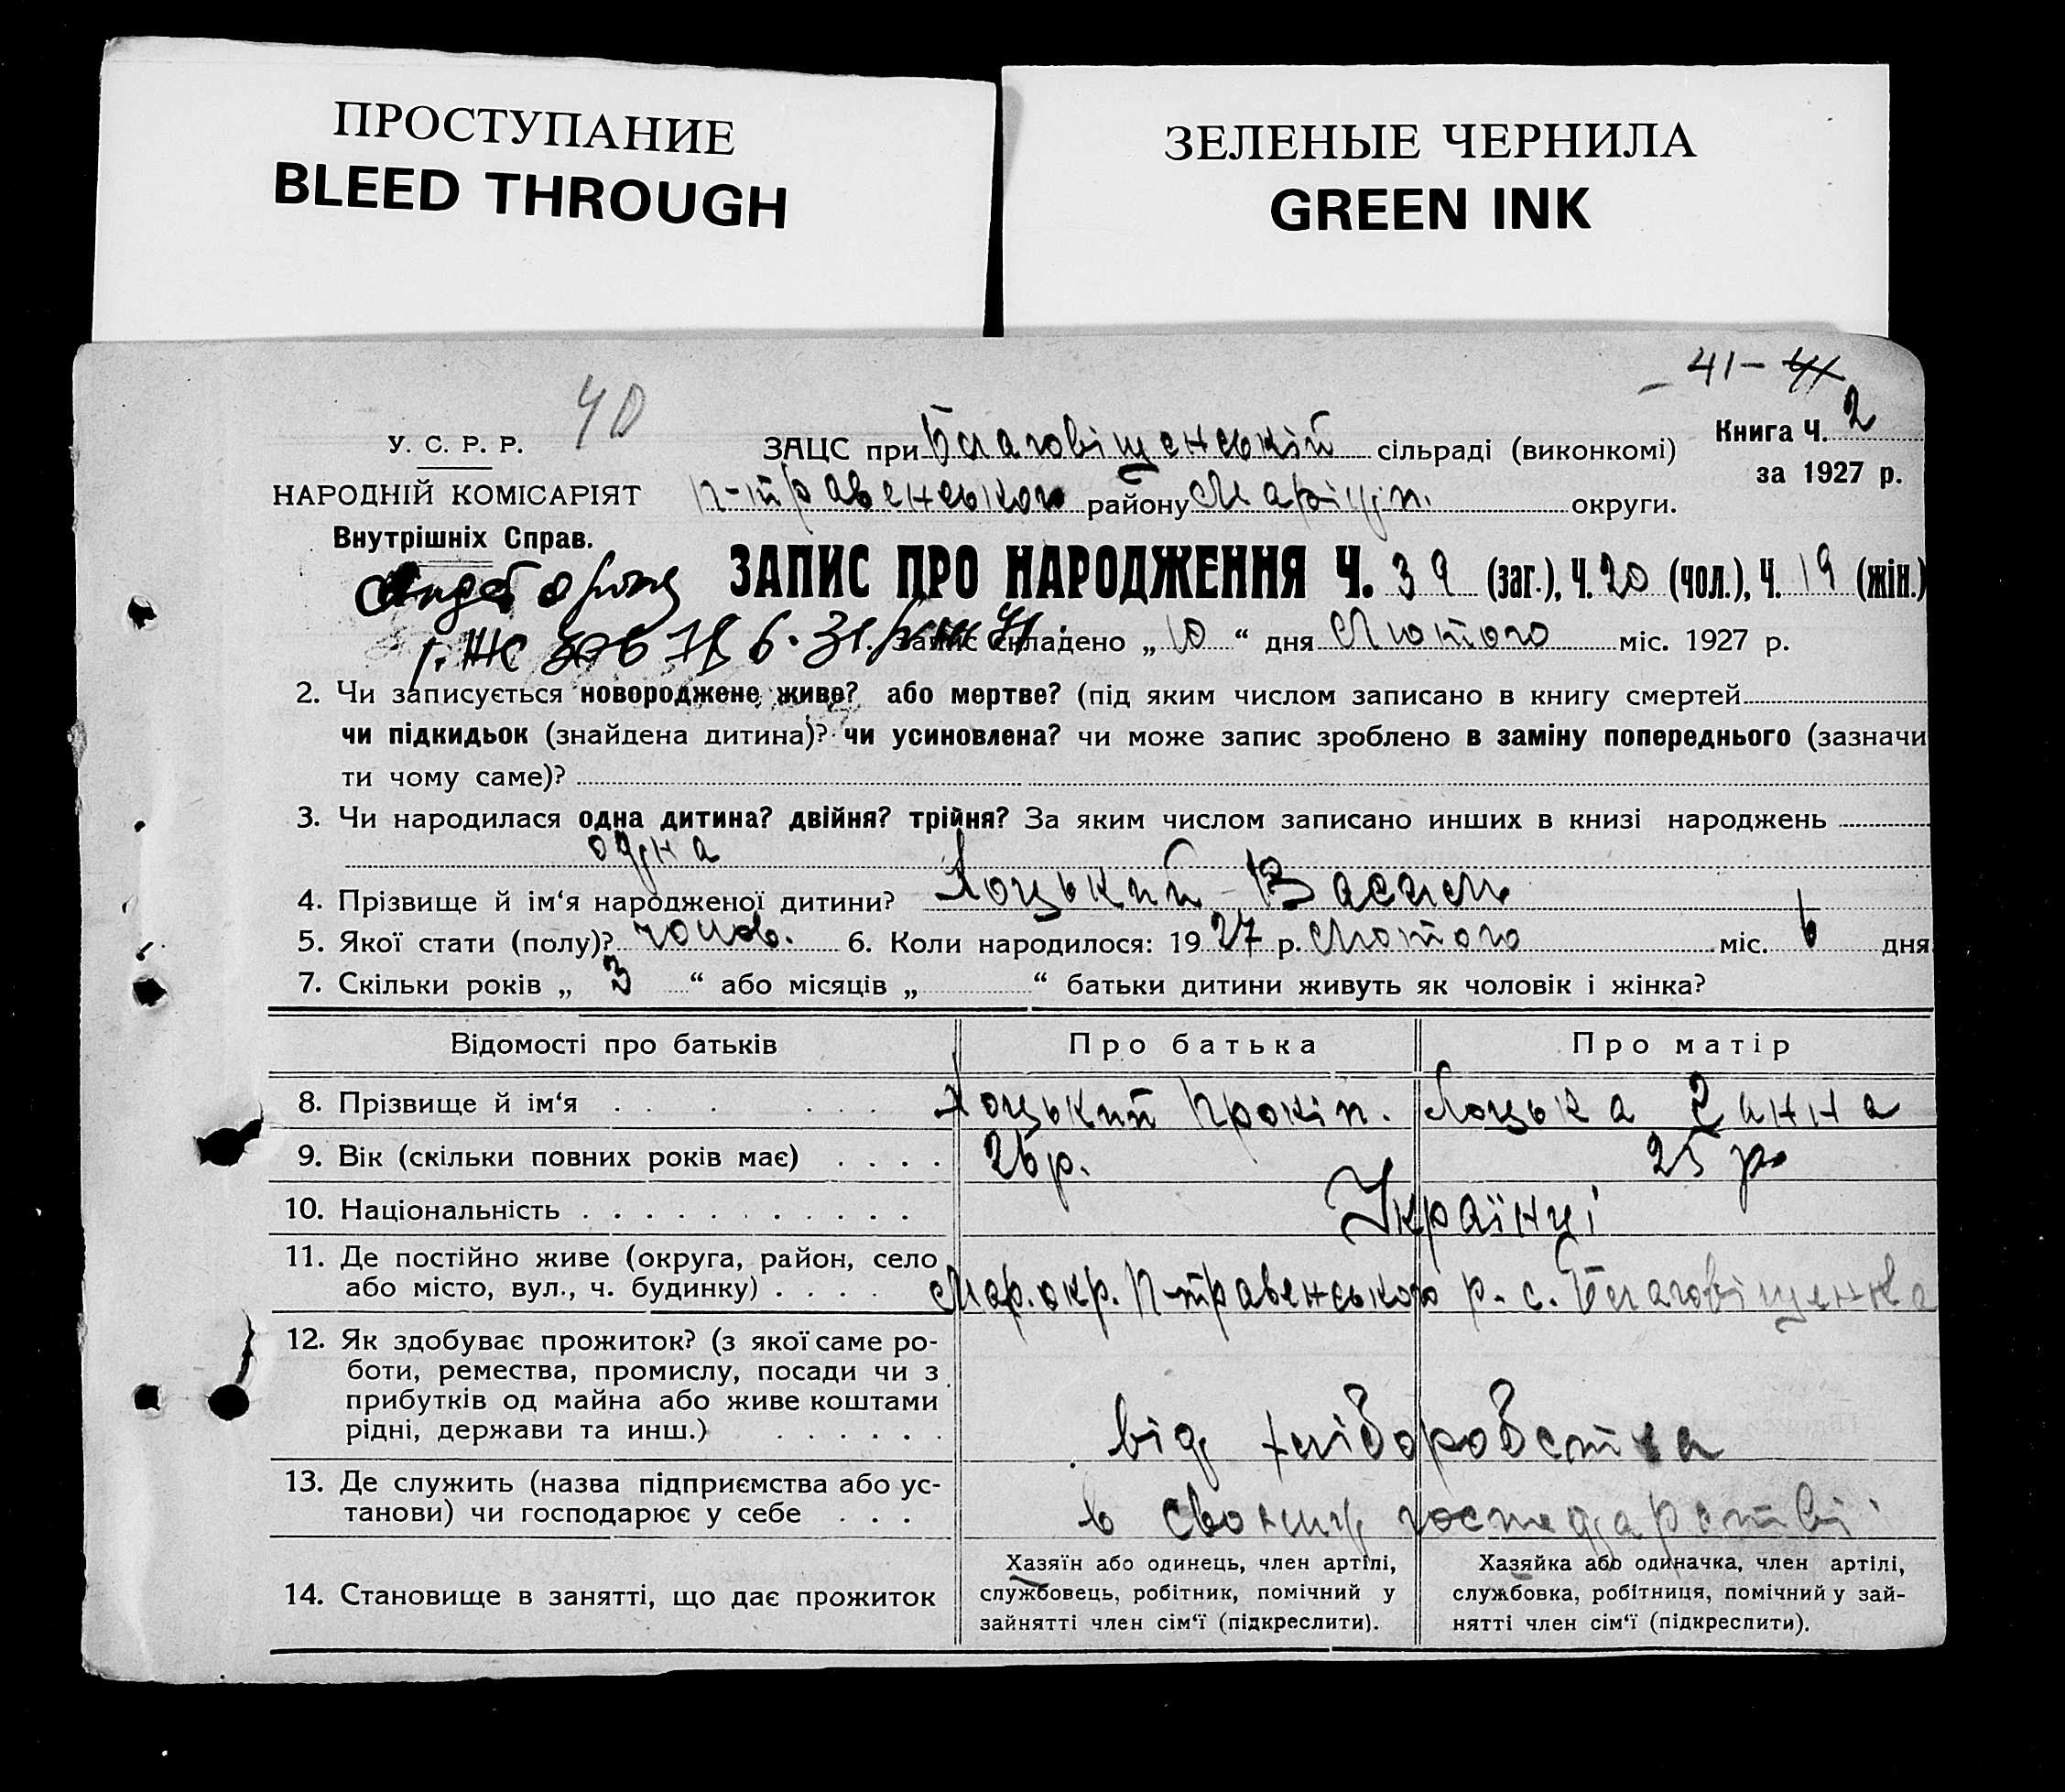 ПРОСТУПАНИЕ
BLEED THROUGH
ЗЕЛЕНЫЕ ЧЕРНИЛА
GREEN INK
41 – 41
40
У. С. Р. Р.
НАРОДНІЙ КОМІСАРІЯТ
Внутрішніх Справ.
ЗАЦС при Благовіщенській сільраді (виконкомі)
П-травенського району Маріуп. округи.
Книга Ч. 2
за 1927 р.
ЗАПИС ПРО НАРОДЖЕННЯ Ч. 39 (заг.), Ч. 20 (чол.), Ч. 19 (жін.)
1. Запис складено „ 10 “ дня Лютого міс. 1927 р.
2. Чи записується новороджене живе? або мертве? (під яким числом записано в книгу смертей
чи підкидьок (знайдена дитина)? чи усиновлена? чи може запис зроблено в заміну попереднього (зазначи
ти чому саме)?
3. Чи народилася одна дитина? двійня? трійня? За яким числом записано инших в книзі народжень
одна
4. Прізвище й ім‘я народженої дитини? Лоцький Василь
5. Якої стати (полу)? чолов. 6. Коли народилося: 1927 р. Лютого міс. 6 дня
7. Скільки років „ 3 “ або місяців „ “ батьки дитини живуть як чоловік і жінка?
Відомості про батьків Про батька Про матір
8. Прізвище й ім‘я . . . . . . . Лоцький Прокіп. Лоцька Ганна
9. Вік (скільки повних років має) . . . . 26 р. 25 р.
10. Національність . . . . . . . . . . . Українці
11. Де постійно живе (округа, район, село
або місто, вул., ч. будинку) . . . . Мар. окр. П-травенського р. с. Благовіщенка
12. Як здобуває прожиток? (з якої саме ро-
боти, ремества, промислу, посади чи з
прибутків од майна або живе коштами
рідні, держави та инш.) . . . . . . від хліборобства
13. Де служить (назва підприємства або ус-
танови) чи господарює у себе . . . в своєму господарстві
14. Становище в занятті, що дає прожиток
Хазяїн або одинець, член артілі,
службовець, робітник, помічний у
зайнятті член сім‘ї (підкреслити).
Хазяйка або одиначка, член артілі,
службовка, робітниця, помічний у зай-
нятті член сім‘ї (підкреслити).